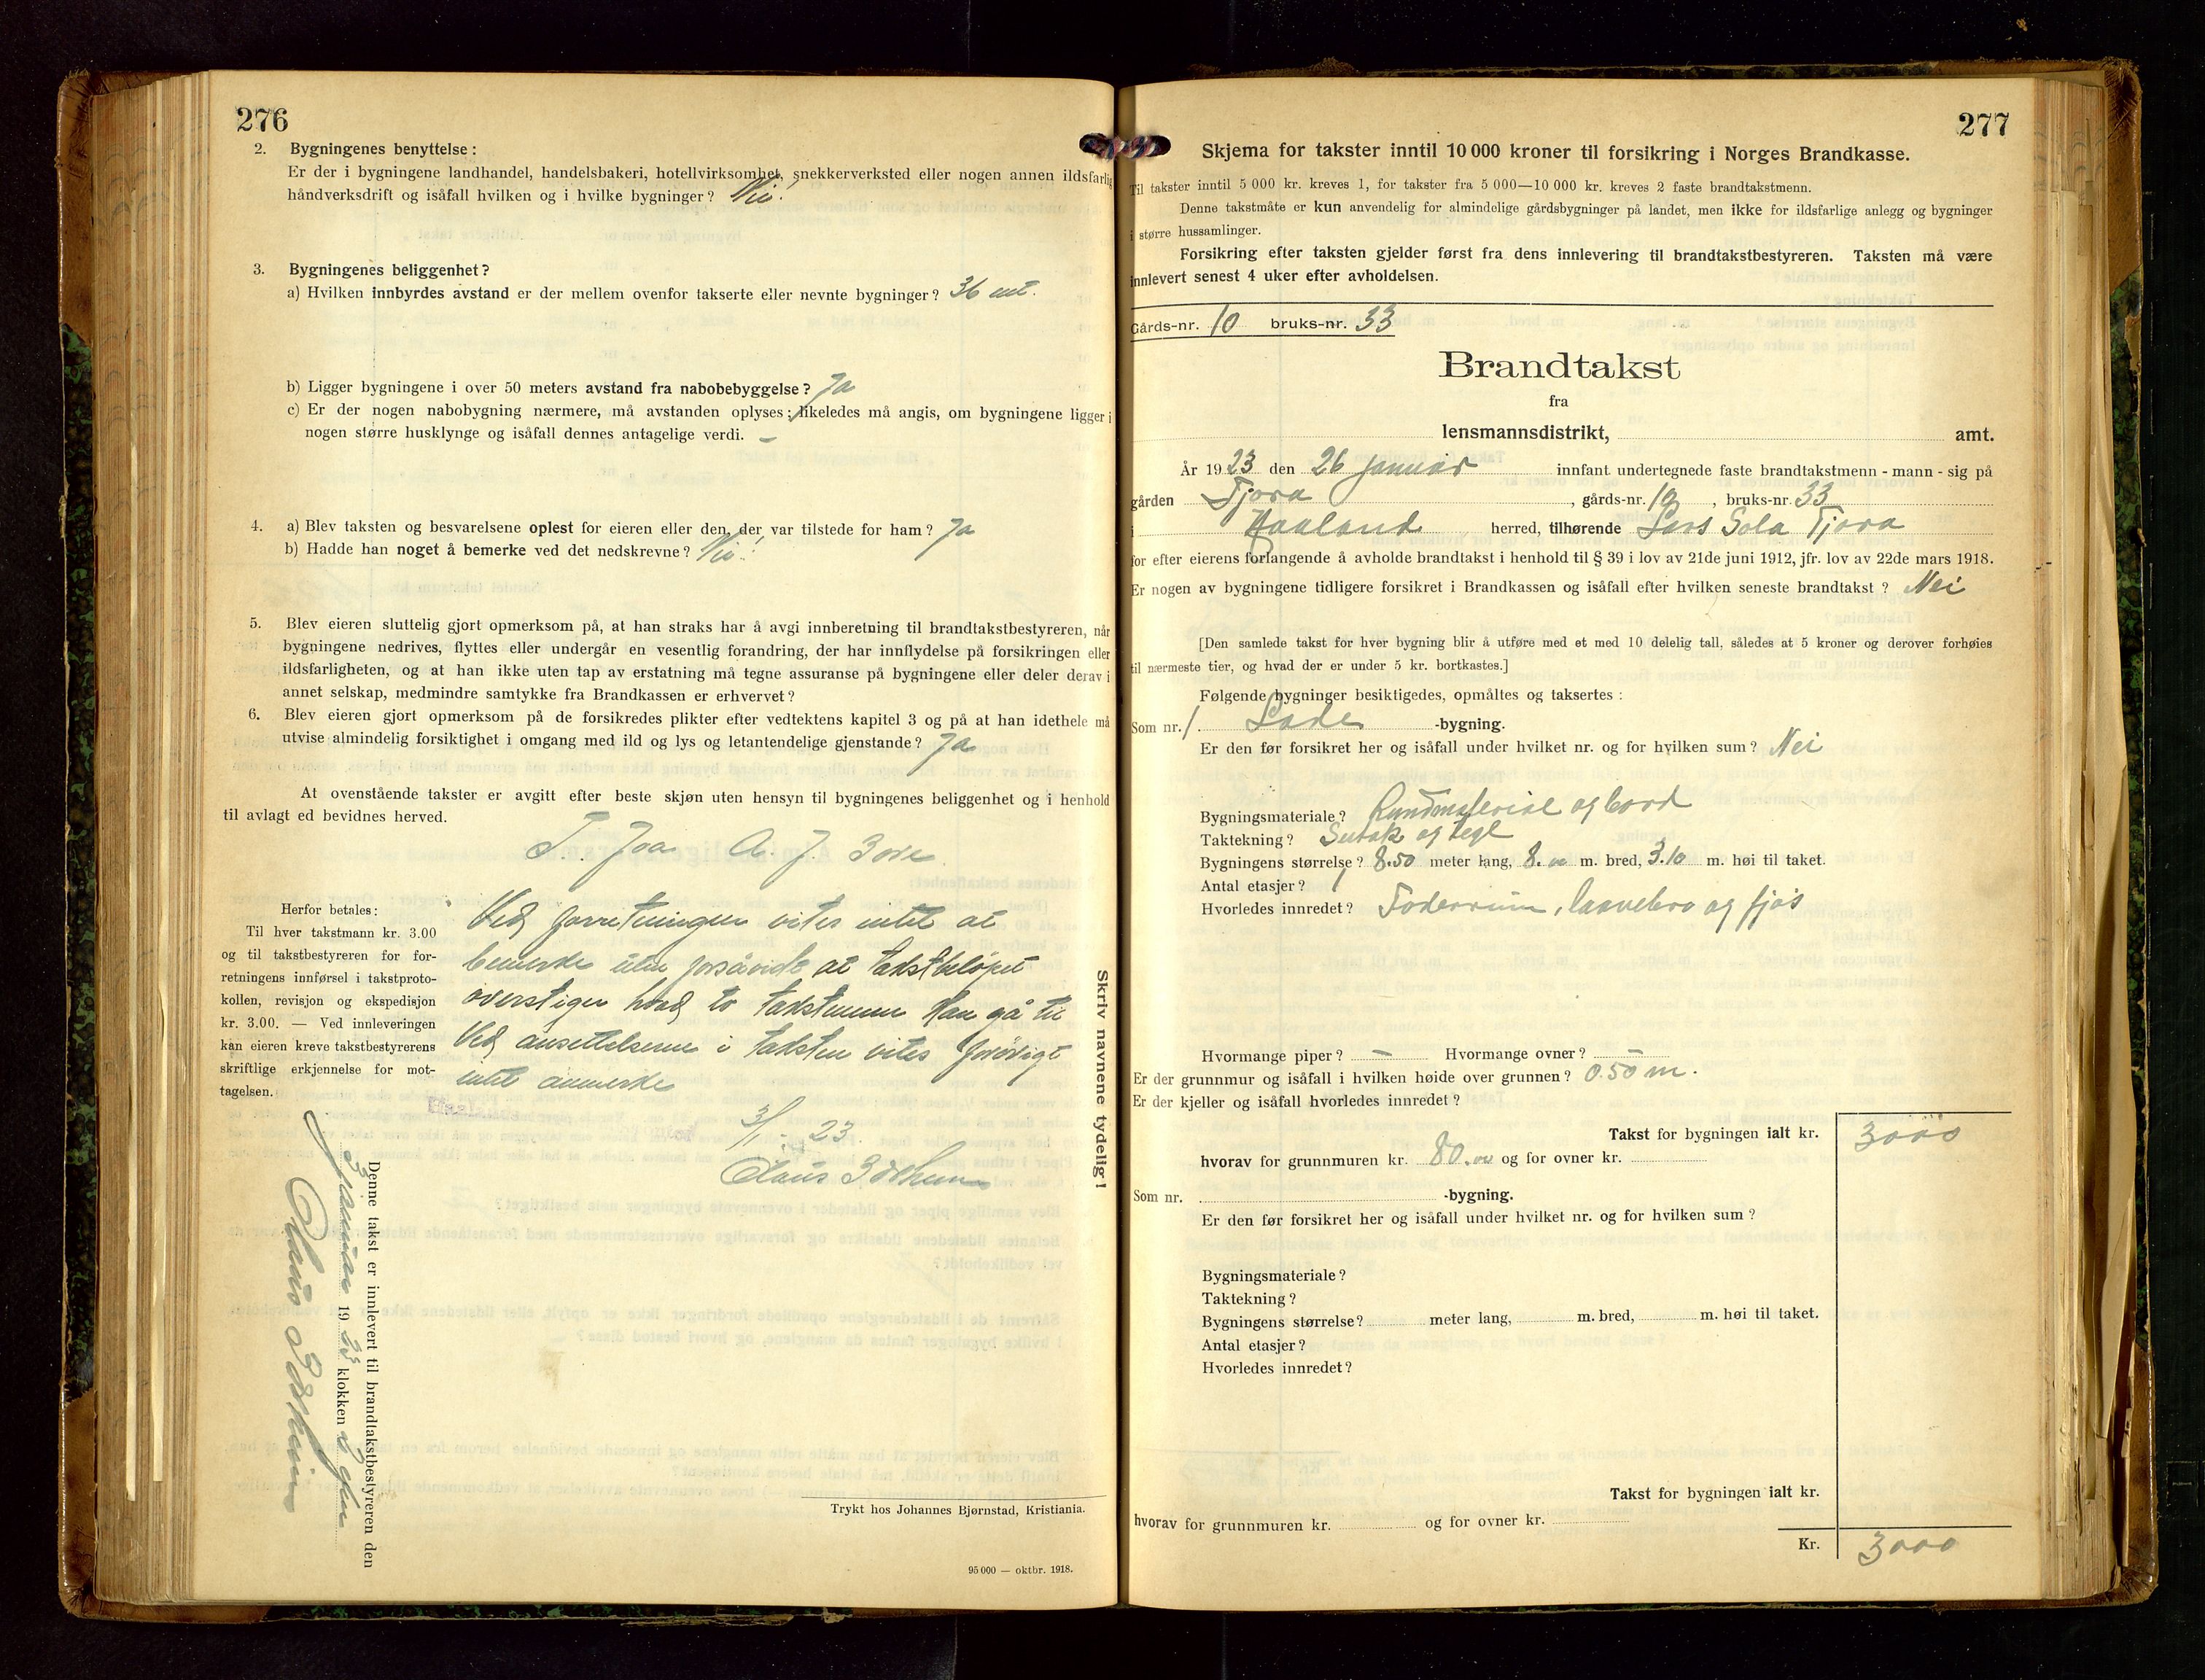 276
2. Bygningenes benyttelse:
Er der i bygningene landhandel, handelsbakeri, hotellvirksomhet, snekkerverksted eller nogen annen ildsfarlig
håndverksdrift og isåfall hvilken og i hvilke bygninger? Nei!
3. Bygningenes beliggenhet?
a) Hvilken innbyrdes avstand er der mellem ovenfor takserte eller nevnte bygninger? 36 mt.
b) Ligger bygningene i over 50 meters avstand fra nabobebyggelse? Ja
c) Er der nogen nabobygning nærmere, må avstanden oplyses; likeledes må angis, om bygningene ligger i
nogen større husklynge og isåfall dennes antagelige verdi. —
4. a) Blev taksten og besvarelsene oplest for eieren eller den, der var tilstede for ham? Ja
b) Hadde han noget å bemerke ved det nedskrevne? Nei!
5. Blev eieren sluttelig gjort opmerksom på, at han straks har å avgi innberetning til brandtakstbestyreren, når
bygningene nedrives, flyttes eller undergår en vesentlig forandring, der har innflydelse på forsikringen eller
ildsfarligheten, og at han ikke uten tap av erstatning må tegne assuranse på bygningene eller deler derav i
annet selskap, medmindre samtykke fra Brandkassen er erhvervet?
6. Blev eieren gjort opmerksom på de forsikredes plikter efter vedtektens kapitel 3 og på at han idethele må
utvise almindelig forsiktighet i omgang med ild og lys og letantendelige gjenstande? Ja
At ovenstående takster er avgitt efter beste skjøn uten hensyn til bygningenes beliggenhet og i henhold
til avlagt ed bevidnes herved.
T. Joa A. J. Bore
Herfor betales:
Til hver takstmann kr. 3.00
og til takstbestyreren for for-
retningens innførsel i takstproto-
kollen, revisjon og ekspedisjon
kr. 3.00. — Ved innleveringen
kan eieren kreve takstbestyrerens
skriftlige erkjennelse for mot-
tagelsen.
Ved forretningen vites intet at
bemerke uten forsåvidt at takstbeløpet
overstiger hvad to takstmenn kan gå til
Ved ansettelserne i taksten vites forøvrigt
intet anmerke
3/1 - 23.
Skriv navnene tydelig!
Denne takst er innlevert til brandtakstbestyreren den
3 januar 1923 klokken
Trykt hos Johannes Bjørnstad, Kristiania.
95 000 — oktbr. 1918.
277
Skjema for takster inntil 10 000 kroner til forsikring i Norges Brandkasse.
Til takster inntil 5 000 kr. kreves 1, for takster fra 5 000—10 000 kr. kreves 2 faste brandtakstmenn.
Denne takstmåte er kun anvendelig for almindelige gårdsbygninger på landet, men ikke for ildsfarlige anlegg og bygninger
i større hussamlinger.
Forsikring efter taksten gjelder først fra dens innlevering til brandtakstbestyreren. Taksten må være
innlevert senest 4 uker efter avholdelsen.
Gårds-nr. 10 bruks-nr. 33
Brandtakst
fra
lensmannsdistrikt, amt.
År 1923 den 26 Januar innfant undertegnede faste brandtakstmenn - mann - sig på
gården Tjora, gårds-nr. 10, bruks-nr. 33
i Haaland herred, tilhørende Lars Sola Tjora
for efter eierens forlangende å avholde brandtakst i henhold til § 39 i lov av 21de juni 1912, jfr. lov av 22de mars 1918.
Er nogen av bygningene tidligere forsikret i Brandkassen og isåfall efter hvilken seneste brandtakst? Nei
[Den samlede takst for hver bygning blir å utføre med et med 10 delelig tall, således at 5 kroner og derover forhøies
til nærmeste tier, og hvad der er under 5 kr. bortkastes.]
Følgende bygninger besiktigedes, opmåltes og taksertes:
Som nr. 1 Lade -bygning.
Er den før forsikret her og isåfall under hvilket nr. og for hvilken sum? Nei
Bygningsmateriale? Rundmateriale og bord
Taktekning? Sutak og tegl
Bygningens størrelse? 8.50 meter lang, 8.00 m. bred, 3.10 m. høi til taket.
Antal etasjer? 1
Hvorledes innredet? Foderrum, laavebro og fjøs
Hvormange piper? — Hvormange ovner? —
Er der grunnmur og isåfall i hvilken høide over grunnen? 0.50 m.
Er der kjeller og isåfall hvorledes innredet?
Takst for bygningen ialt kr. 3000
hvorav for grunnmuren kr. 80.00 og for ovner kr.
Som nr. -bygning.
Er den før forsikret her og isåfall under hvilket nr. og for hvilken sum?
Bygningsmateriale?
Taktekning?
Bygningens størrelse? meter lang, m. bred, m. høi til taket.
Antal etasjer?
Hvorledes innredet?
Takst for bygningen ialt kr.
hvorav for grunnmuren kr. og for ovner kr.
Kr. 3000